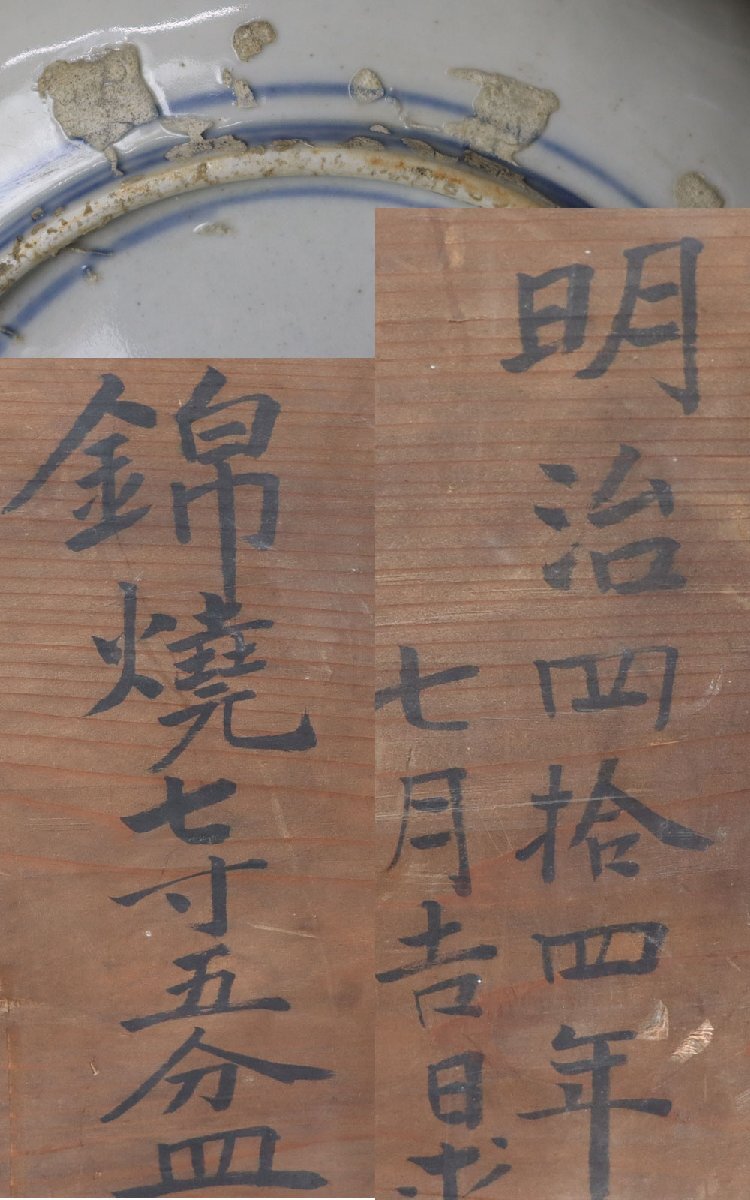 明治四拾四年
七月吉日求
錦燒七寸五分皿